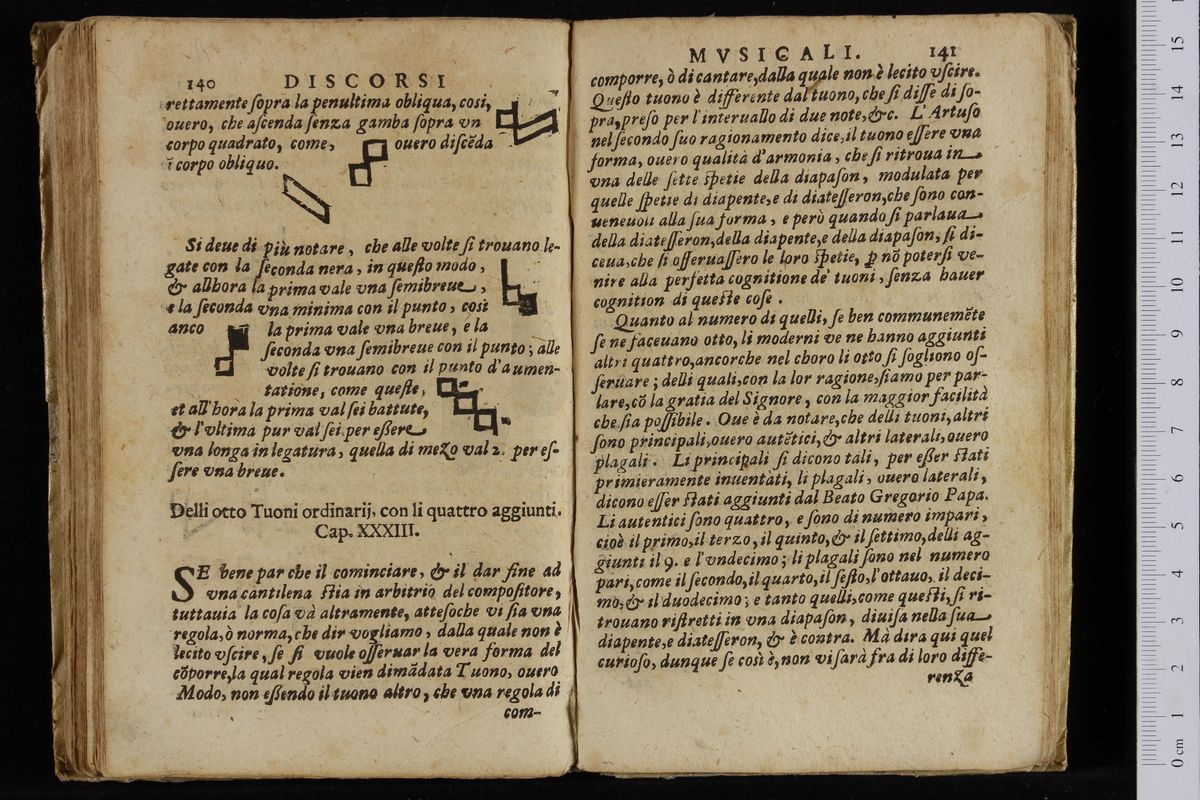 140 DISCORSI
rettamente ſopra la penultima obliqua, cosi,
ouero, che aſcenda ſenza gamba ſopra vn
corpo quadrato, come, ouero diſcẽda
ĩ corpo obliquo.
Si deue di più notare, che alle volte ſi trouano le-
gate con la ſeconda nera, in queſto modo,
& allhora la prima vale vna ſemibreue,
e la ſeconda vna minima con il punto, così
anco la prima vale vna breue, e la
ſeconda vna ſemibreue con il punto; alle
volte ſi trouano con il punto d'aumen-
tatione, come queſte,
et all'hòra la prima val ſei battute,
& l'vltima pur val ſei per eßere
vna longa in legatura, quella di mezo val 2. per eſ-
ſere vna breue.
Delli otto Tuoni ordinarij, con li quattro aggiunti.
Cap. XXXIII.
SE bene par che il cominciare, & il dar fine ad
vna cantilena ſtia in arbitrio del compoſitore,
tuttauia la coſa và altramente, atteſoche vi ſia vna
regola, ò norma, che dir vogliamo, dalla quale non è
lecito vſcire, ſe ſi vuole oſſeruar la vera forma del
cõporre, la qual regola vien dimãdata Tuono, ouero
Modo, non eßendo il tuono altro, che vna regola di
com-
MVSICALI. 141
comporre, ò di cantare, dalla quale non è lecito vſcire.
Queſto tuono è differente dal tuono, che ſi diſſe di ſo-
pra, preſo per l'interuallo di due note, &c. L'Artuſo
nel ſecondo ſuo ragionamento dice, il tuono eſſere vna
forma, ouero qualità d'armonia, che ſi ritroua in
vna delle ſette ſpetie della diapaſon, modulata per
quelle ſpetie di diapente, e di diateſſeron, che ſono con-
ueneuoli alla ſua forma, e però quando ſi parlaua
della diateſſeron, della diapente, e della diapaſon, ſi di-
ceua, che ſi oſſeruaſſero le loro ſpetie, ꝑ nõ poterſi ve-
nire alla perfetta cognitione de' tuoni, ſenza hauer
cognition di queſte coſe.
Quanto al numero di quelli, ſe ben communemẽte
ſe ne faceuano otto, li moderni ve ne hanno aggiunti
altri quattro, ancorche nel choro li otto ſi ſogliono oſ-
ſeruare; delli quali, con la lor ragione, ſiamo per par-
lare, cõ la gratia del Signore, con la maggior facilità
che ſia poſſibile. Oue è da notare, che delli tuoni, altri
ſono principali, ouero autẽtici, & altri laterali, ouero
plagali. Li principali ſi dicono tali, per eßer ſtati
primieramente inuentati, li plagali, ouero laterali,
dicono eſſer ſtati aggiunti dal Beato Gregorio Papa.
Li autentici ſono quattro, e ſono di numero impari,
cioè il primo, il terzo, il quinto, & il ſettimo, delli ag-
giunti il 9. e l'vndecimo; li plagali ſono nel numero
pari, come il ſecondo, il quarto, il ſeſto, l'ottauo, il deci-
mo, & il duodecimo; e tanto quelli, come queſti, ſi ri-
trouano riſtretti in vna diapaſon, diuiſa nella ſua
diapente, e diateſſeron, & è contra. Mà dira qui quel
curioſo, dunque ſe così è, non vi ſarà fra di loro diffe-
renza
0 cm 1 2 3 4 5 6 7 8 9 10 11 12 13 14 15